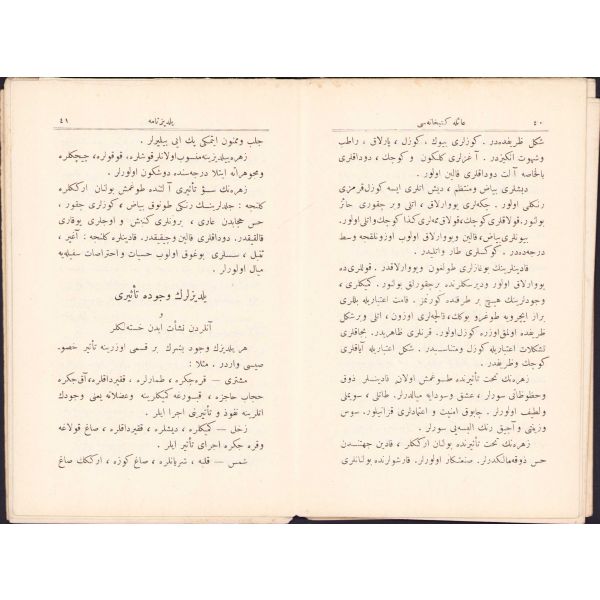 ٤٠ عائله كتبخانه‌سی
شكل ظریفده‌در . كوزلری بیوك ، كوزل ، پارلاق ، راطب
وشهوت انكیزدر . آغزلری كلكون و كوچك ، دوداقلری
بالخاصه آلت دوداقلری قالین اولور .
دیشلری بیاض ومنتظم ، دیش اتلری ایسه كوزل قرمزی
رنكلی اولور . چكه‌لری یووارلاق ، اتلی وبر چقوری حائز
بولنور . قولاقلری كوچك ، قولاق ممه‌لری كذا كوچك واتلی اولور .
بیونلری بیاض ، قالین ویووارلاق اولوب اوزونلقجه وسط
درجه‌ده‌در . كوكسلری طار واتلیدر .
قادینلرینك بوغازلری طولغون ویووارلاقدر . قوللری ده
یووارلاق اولور ودیرسكلرنده برچقورلق بولنور . كمیكلری ،
وجودلرینك هیچ بر طرفنده كورنمز . قامت اعتباریله بللری
براز ایچرویه طوغرو بوكك ، قالچه‌لری اوزون ، اتلی وبرشكل
ظریفده اولمق اوزره كوزل اولور . قرنلری ظاهریدر . بجاقلری
تشكلات اعتباریله كوزل ومتناسبدر . شكل اعتباریله آیاقلری
كوچك وظریفدر .
زهره‌نك تحت تأثیرنده طوغمش اولان قادینلر ذوق
وحظوظاتی سورلر ، عشق وسودایه میالدرلر . طاتلی ، سویملی
ولطیف اولورلر . چابوق امنیت و اعتمادلری قزانیلور . سوس
وزینتی وآچیق رنك البسه‌یی سورلر .
زهره‌نك تحت تأثیرنده بولنان ارككلر ، قادین جهتندن
حس ذوقه مالكدرلر . صنعتكار اولورلر . قارشولرنده بولنانلری
یلدیزنامه ٤١
جلب وممنون ایتمكی پك ایی بیلیرلر .
زهره ییلدیزینه منسوب اولانلر قوشلره ، قوقولره ، چیچكلره
ومجوهراته ابتلا درجه‌سنده دوشكون اولورلر .
زهره‌نك سؤ تأثیری آلتنده طوغمش بولنان ارككلره
كلنجه : جلدلرینك رنكی طونوق بیاض ، كوزلری چقور ،
حس حجابدن عاری ، برونلری كنیش و اوجلری یوقاری
قالقیقدر . دوداقلری قالین وجیقیقدر . قادینلره كلنجه : آغیر ،
ثقیل ، سسلری بوغوق اولوب حسیات واحتراصات سفیله‌یه
میال اولورلر .
یلدیزلرك وجوده تأثیری
و
آنلردن نشأت ایدن خسته‌لكلر
هر یلدیزك وجود بشرك بر قسمی اوزرینه تأثیر خصو-
صیسی واردر . مثلا :
مشتری — قره‌جكر ، طمارلره ، ققیرداقلره ، آق‌جكره
حجاب حاجزه ، قبورغه كمیكلرینه وعضلاته یعنی وجودك
اتلرینه نفوذ و تأثیرنی اجرا ایلر .
زحل — كمیكلره ، دیشلره ، ققیرداقلره ، صاغ قولاغه
وقره جكره اجرای تأثیر ایلر .
شمس — قلبه ، شریانلره ، صاغ كوزه ، ارككك صاغ